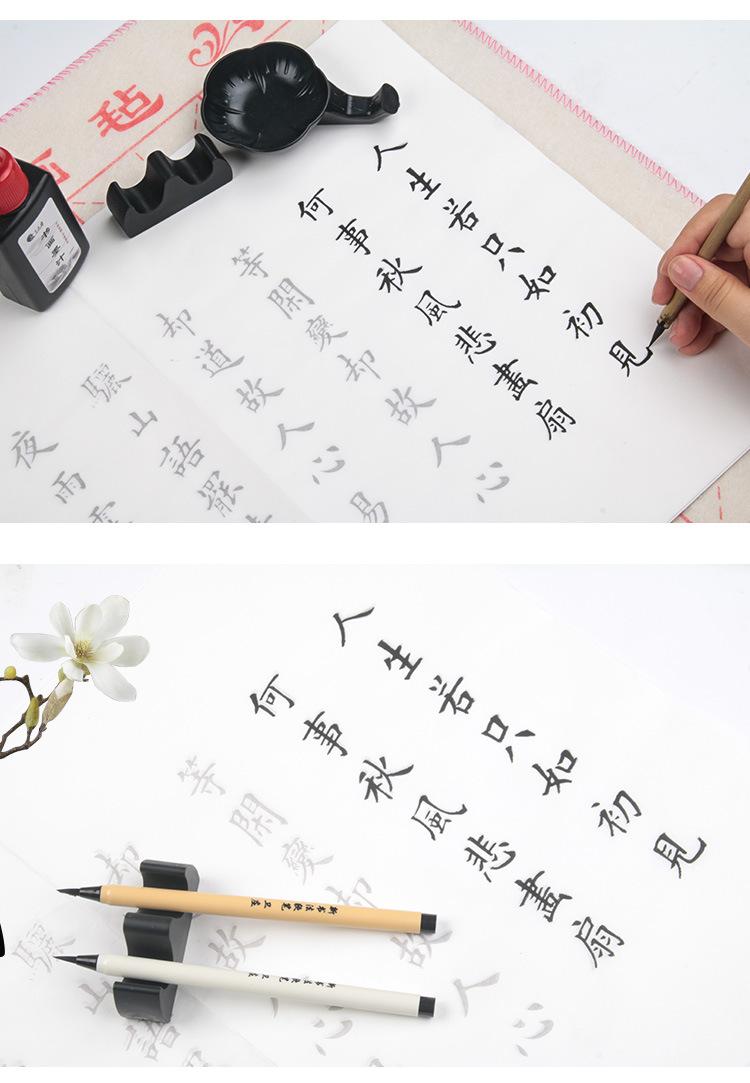 毡
书画墨汁
人生若只如初見
何事秋風悲畫扇
等閑變却故人心
却道故人心易
驪山語罷
夜雨
人生若只如初見
何事秋風悲畫扇
等閑變却故人心
却故
驪山語